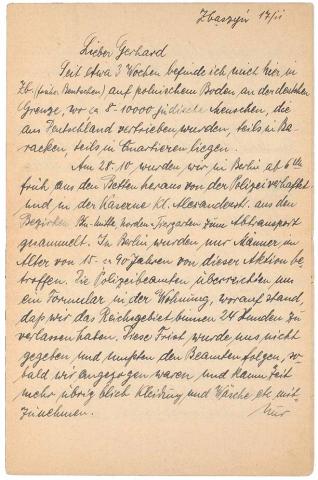 Zbaszyń 17/11
Lieber Gerhard
Seit etwa 3 Wochen befinde ich mich hier in
Zb. (früher Bentschen) auf polnischem Boden an der deutschen
Grenze, wo ca 8-10000 jüdische Menschen, die
aus Deutschland vertrieben wurden, teils in Ba-
racken, teils in Quartieren liegen.
Am 28.10 wurden wir in Berlin ab 6 Uhr
früh aus den Betten heraus von der Polizei verhaftet
und in der Käserne kl. Alexanderst. aus den
Bezirken Bln-Mitte, Norden + Tiergarten zum Abtransport
gesammelt. In Berlin wurden nur Männer im
Alter von 15-ca 90 Jahren von dieser Aktion be-
troffen. Die Polizeibeamten überreichten uns
ein Formular in der Wohnung, worauf stand,
daß wir das Reichsgebiet binnen 24 Stunden zu
verlassen haben. Diese Frist wurde uns nicht
gegeben und mußten den Beamten folgen, so-
bald wir angezogen waren und kaum Zeit
mehr übrig blieb Kleidung und Wäsche etc mit-
zunehmen.
Nur